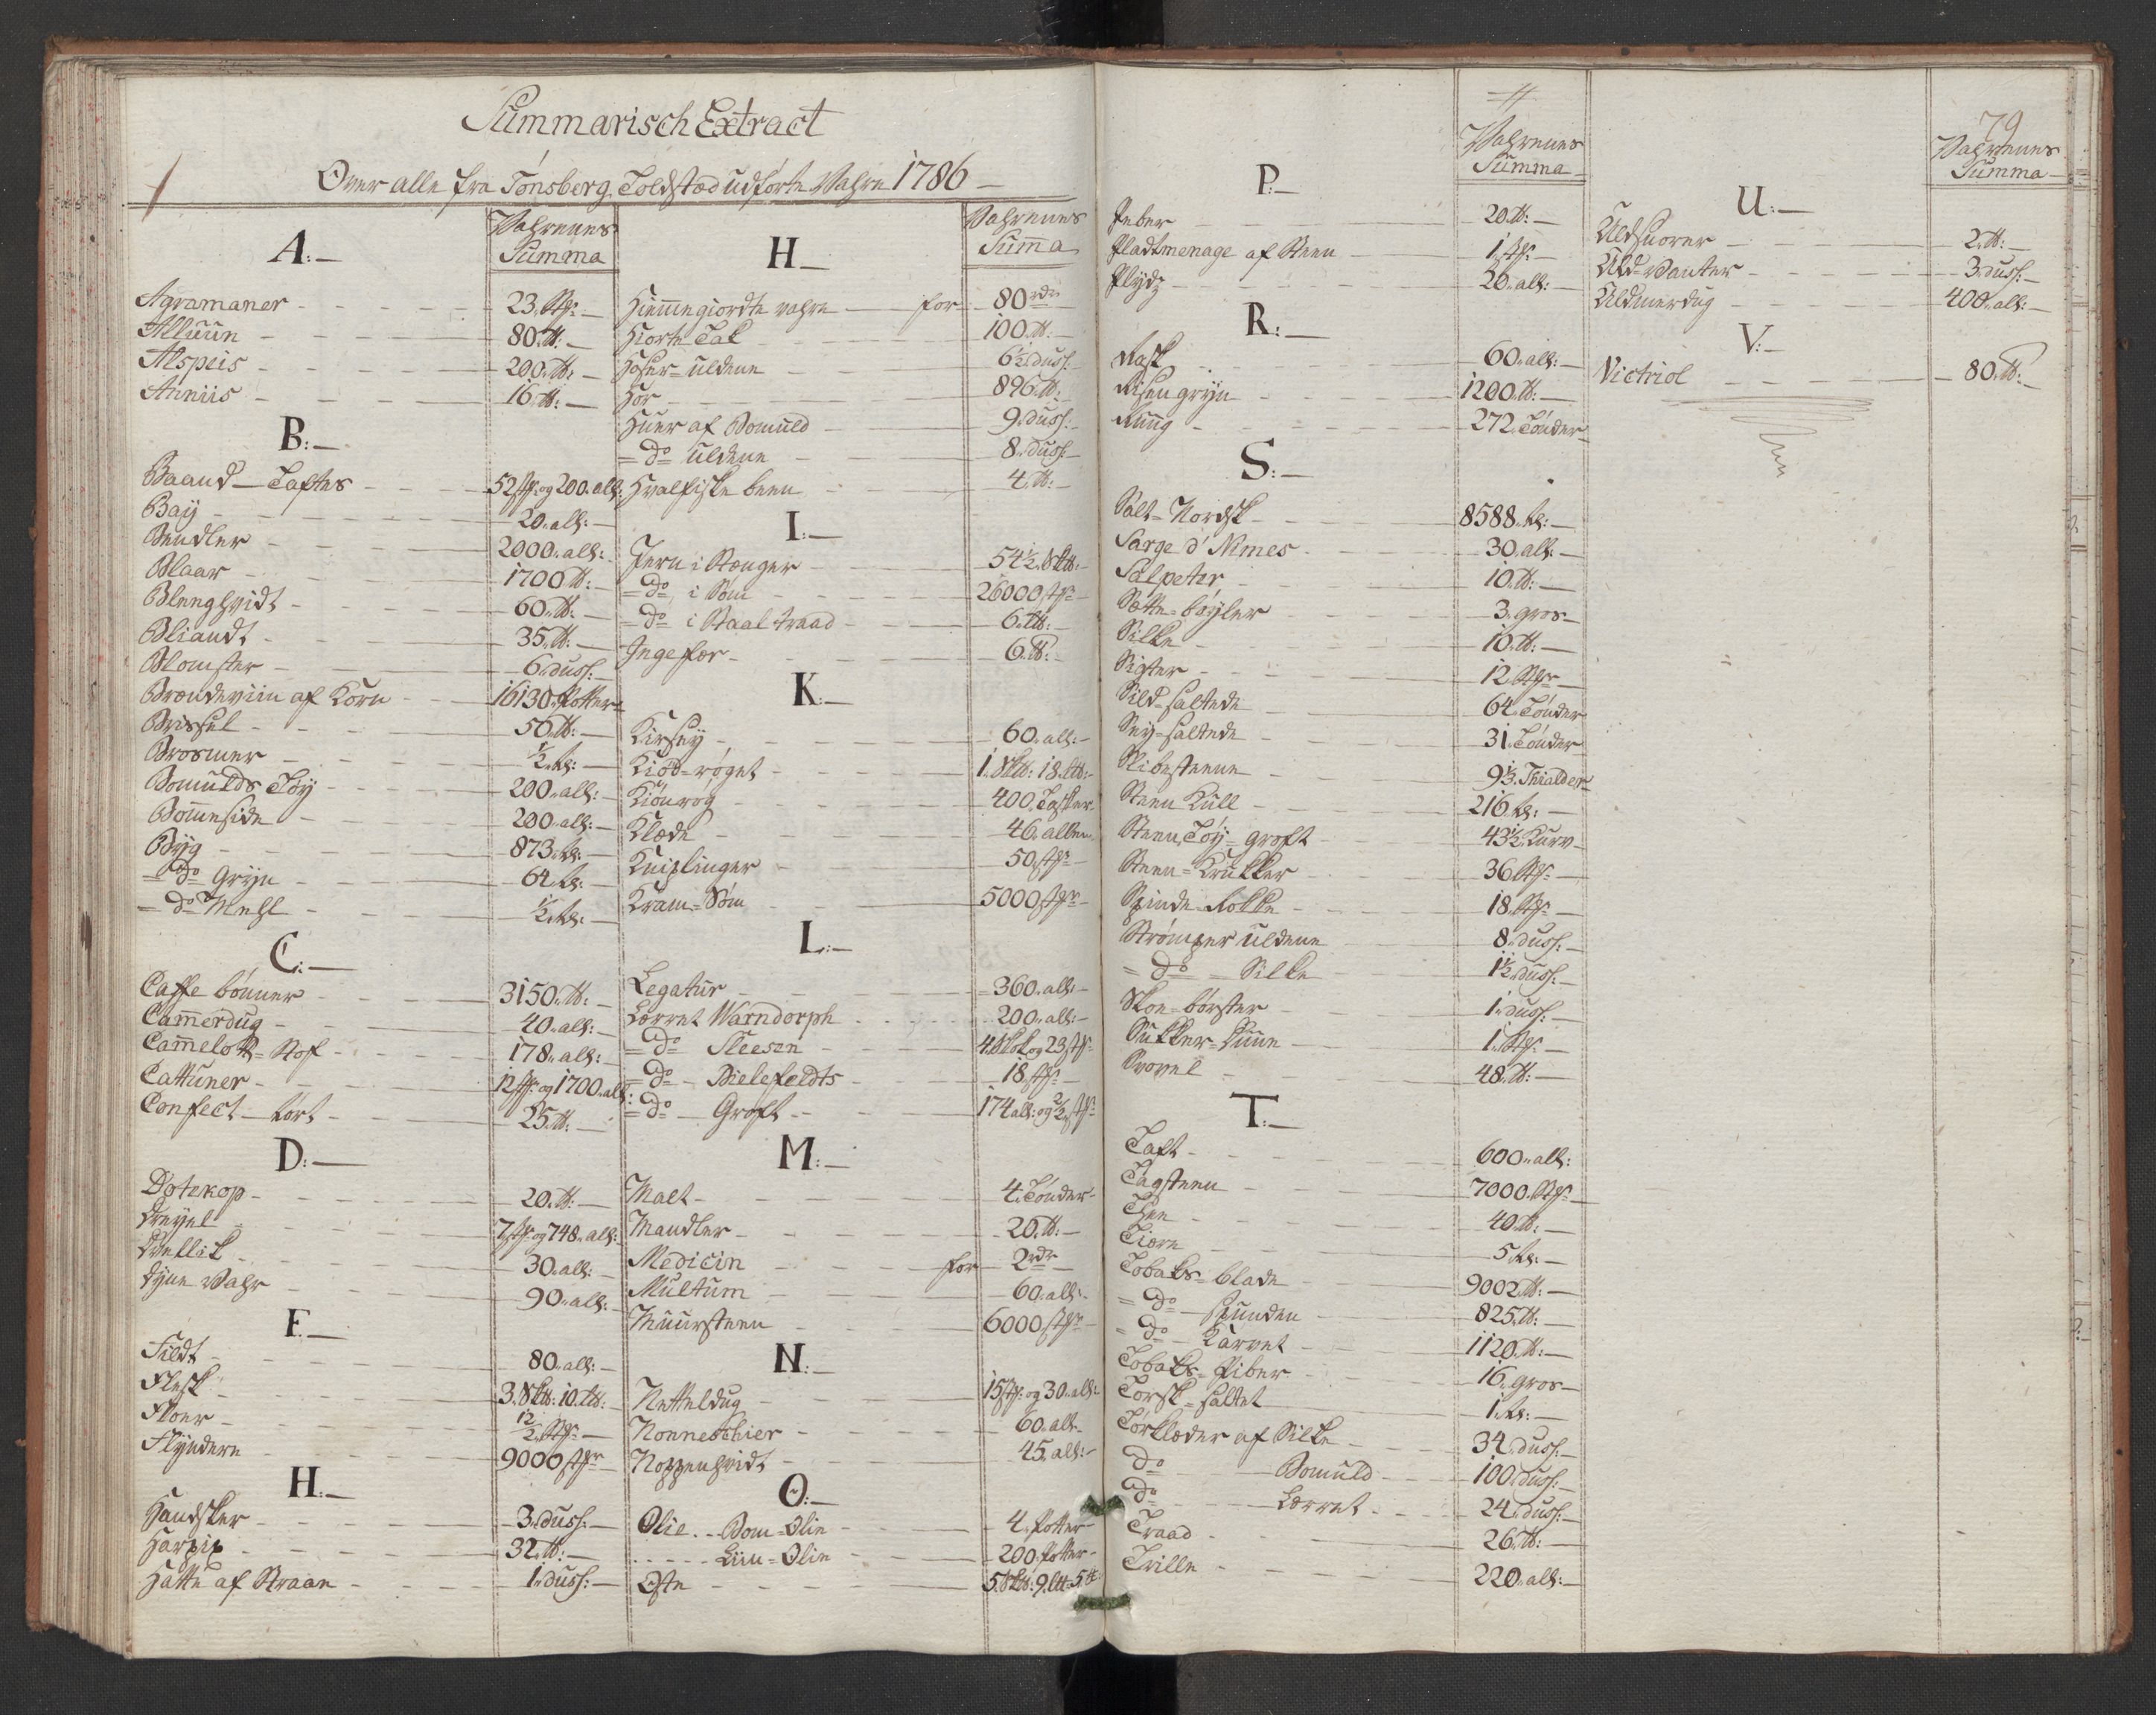 Summarisch Extract
Over alle fra Tønsberg Toldsted udførte Vahre 1786
Vahrenes
Summa
A:
Agramaner 23 stk:
Alluun 80 ℔:
Alspeis 200 ℔:
Anniis 16 ℔:
B:
Baand Taftes 52 stk: og 200 all:
Bay 20 all:
Bendler 2000 all:
Blaar 1700 ℔:
Blenghvidt 60 ℔:
Bliandt 35 ℔:
Blomster 6 duss:
Brændeviin af Korn 16130 Potter
Brissel 50 ℔:
Brosmer ½
Bomulds Tøy 200 all:
Bommeside 200 all:
Byg 873
do Gryn 64
do Mehl ½
C:
Caffe bønner 3150 ℔:
Cammerdug 40 all:
Cammelott Stof 178 all:
Cattuner 12 stk: og 1700 all:
Confect tørt 25 ℔:
D:
Dotekop 20 ℔:
Dreyel 7 stk: og 748 all:
Dvellik 30 all:
Dyne Vahr 90 all:
F.
Fildt 80 all:
Flesk 3 Sk℔: 10 L℔:
Floer 12/2 stk:
Flyndere 9000 stkr
H:
Handsker 3 duss:
Harpix 32 ℔:
Hatte af Straae 1 duss:
Vahrenes
Summa
H
Hiemmegiordte vahre for 80 rdr
Hiorte Tak 100 ℔:
Hoser uldene 6½ duss:
Hør 896 ℔:
Huer af Bomuld 9 duss:
do uldene 8 duss:
Hvalfiske been 4 ℔:
I:
Jern i Stænger 54½ Sk℔:
do i Søm 26000 stkr
do i Staal traad 6 L℔:
Ingefær 6 ℔:
K:
Kirsey 60 all:
Kiød røget 1 Sk℔: 18 L℔:
Kiønrøg 400
Klæde 46 allen
Kniplinger 50 stkr
Kram Søm 5000 stkr
L:
Legatur 360 all:
Lærret Warndorph 200 all:
do Sleesen 4 Skok og 23 stk:
do Bielefeldts 18 stkr
do Groft 174 all: og 2/2 stk
M:
Malt 4 Tønder
Mandler 20 ℔:
Medicin for 2 rdr
Multum 60 all:
Muursteen 6000 stkr
N:
Netteldug 15 stk: og 30 all:
Nonnesthier 60 all:
Noppenhvidt 45 all:
O:
Olie Bom Olie 4 Potter
Liin Olie 200 Potter
Oste 5 Sk℔: 9 L℔: 5 ℔
Vahrenes
Summa
P:
Peber 20 ℔:
Pladtmenage af Steen 1 stk:
Plydz 20 all:
R:
Rask 60 all:
Risengryn 1200 ℔:
Ruug 272 Tønder
S:
Salt Nordsk 8588
Sarge d'Nimes 30 all:
Salpeter 10 ℔:
Sætte bøyler 3 gros
Silke 10 ℔:
Sigter 12 stkr
Sild saltede 64 Tønder
Sey saltede 31 Tønder
Slibestene 9⅓ Thialder
Steen Kull 216
Steen Tøy groft 43½ Kurv
Steen Krukker 36 stk:
Spinde Rokke 18 stk:
Strømper uldene 8 duss:
do Silke 1½ duss:
Skoe børster 1 duss:
Sukker 1 stk:
Svovel 48 ℔:
T:
Taft 600 all:
Tagsteen 7000 stk:
Thee 40 ℔:
Tiære 5
Tobaks blade 9002 ℔:
do spunden 825 ℔:
do Karvet 1120 ℔:
Tobaks Piber 16 gros
Torsk saltet 1
Tørklæder af Silke 34 duss:
do Bomuld 100 duss:
do Lærret 24 duss:
Traad 26 ℔:
Trille 220 all:
79
Vahrenes
Summa
U:
Uldsnorer 2 ℔:
Uld Vanter 3 duss:
Uldmerdug 400 all:
V:
Victriol 80 ℔: